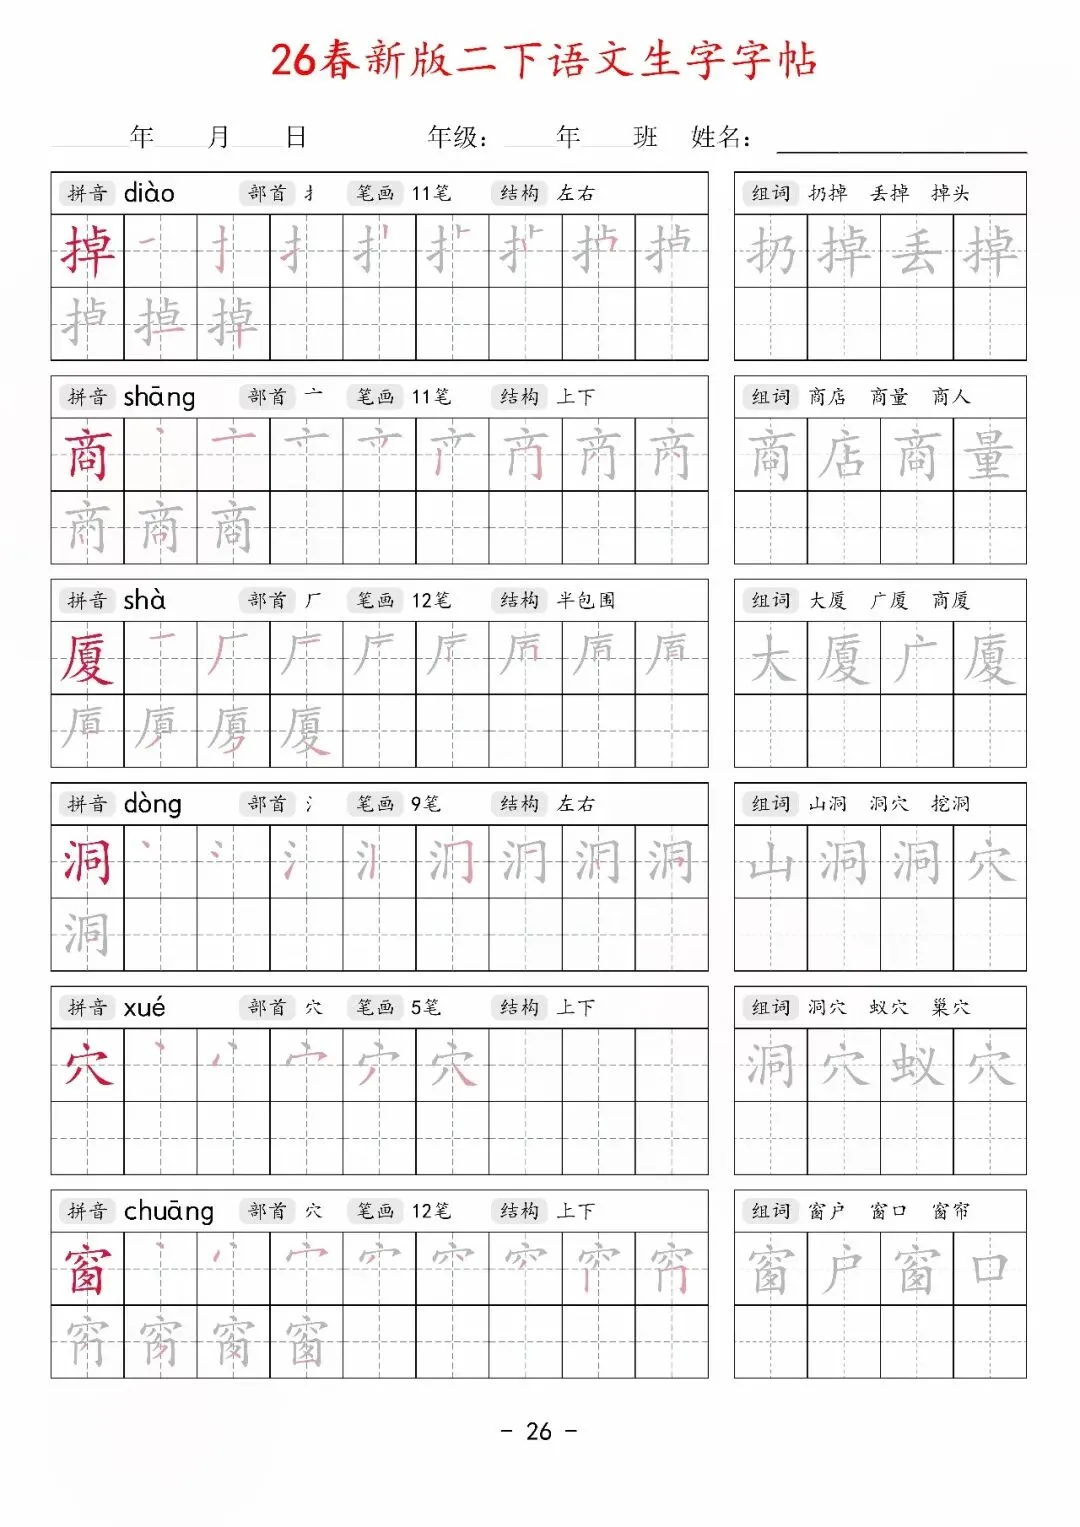 26春新版二下语文生字字帖
年 月 日 年级： 年 班 姓名：
拼音 diào 部首 扌 笔画 11笔 结构 左右 组词 扔掉 丢掉 掉头
掉 扔 掉 丢 掉
掉
拼音 shāng 部首 亠 笔画 11笔 结构 上下 组词 商店 商量 商人
商 商 店 商 量
商
拼音 shà 部首 厂 笔画 12笔 结构 半包围 组词 大厦 广厦 商厦
厦 大 厦 广 厦
厦
拼音 dòng 部首 氵 笔画 9笔 结构 左右 组词 山洞 洞穴 挖洞
洞 山 洞 洞 穴
洞
拼音 xué 部首 穴 笔画 5笔 结构 上下 组词 洞穴 蚁穴 巢穴
穴 穴 洞 穴 蚁 穴
拼音 chuāng 部首 穴 笔画 12笔 结构 上下 组词 窗户 窗口 窗帘
窗 窗 户 窗 口
窗
- 26 -